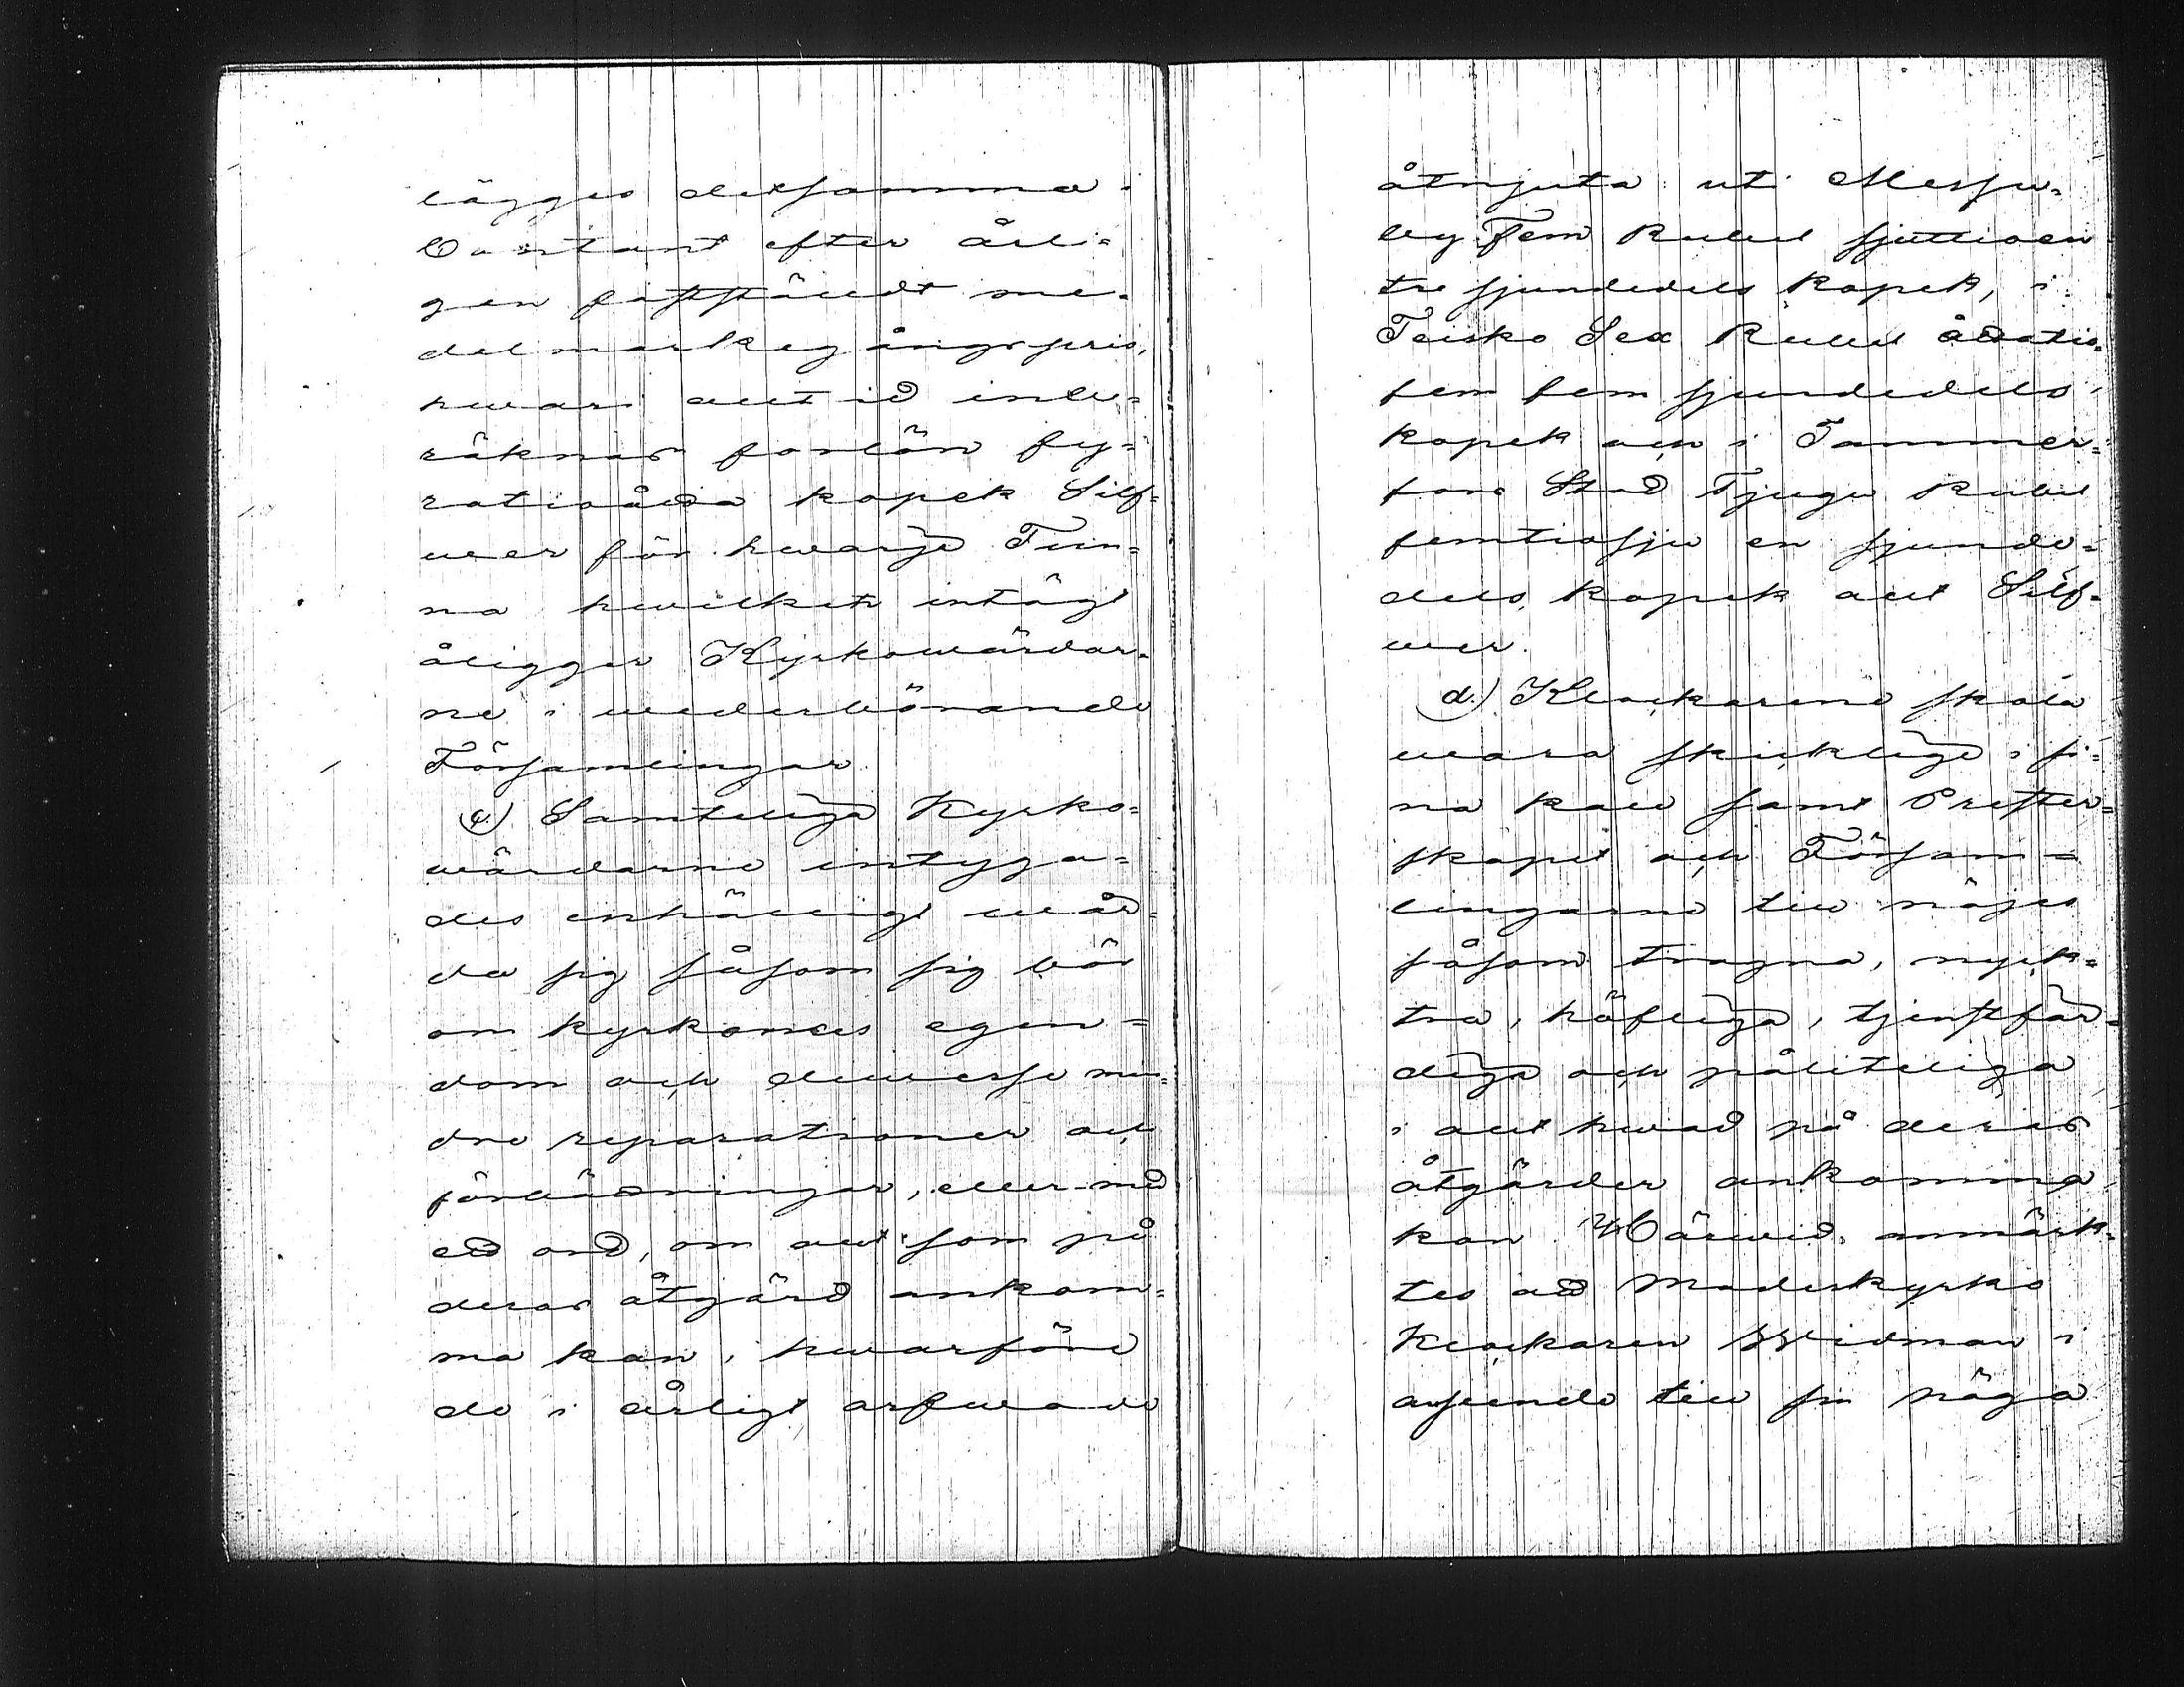 lägges detsamma i
Contant efter årli=
gen faststäldt me=
delmarkegångspris,
hwari alltid inbe=
räknas forlön fy=
ratioåtta kopek Silf=
wer för hwarje Tun=
na hwilket intägt
åligger Kyrkowärdar=
ne i wederbörande
Församlingar.
c.) Samtelige Kyrko=
wärdarne intyga=
des enhälligt wår=
da sig såsom sig bör
om kyrkornas egen=
dom och diwerse min=
dre reparationer och
förbättringar, eller med
ett ord, om allt som på
deras åtgärd ankom=
ma kan, hwarföre
de i årligt arfwode
åtnjuta: uti Messu=
by Fem Rubel sjuttioen
tre sjundedels kopek, i
Teisko Sex Rubel åttatio=
fem fem sjundedels
kopek och i Tammer=
fors Stad Tjugu Rubel
femtiosju en sjunde=
dels kopek allt Silf=
wer.
d.) Klockarene skola
wara skicklige i si=
na kall samt Prester=
skapet och Församl=
lingarne till nöjes
såsom trägna, nyck=
tra, höfliga, tjenstfär=
diga och pålitliga
i allt hwad på deras
åtgärder ankomma
kan. Härwid anmärk=
tes att Moderkyrko
Klockaren Widman i
afseende till sin höga